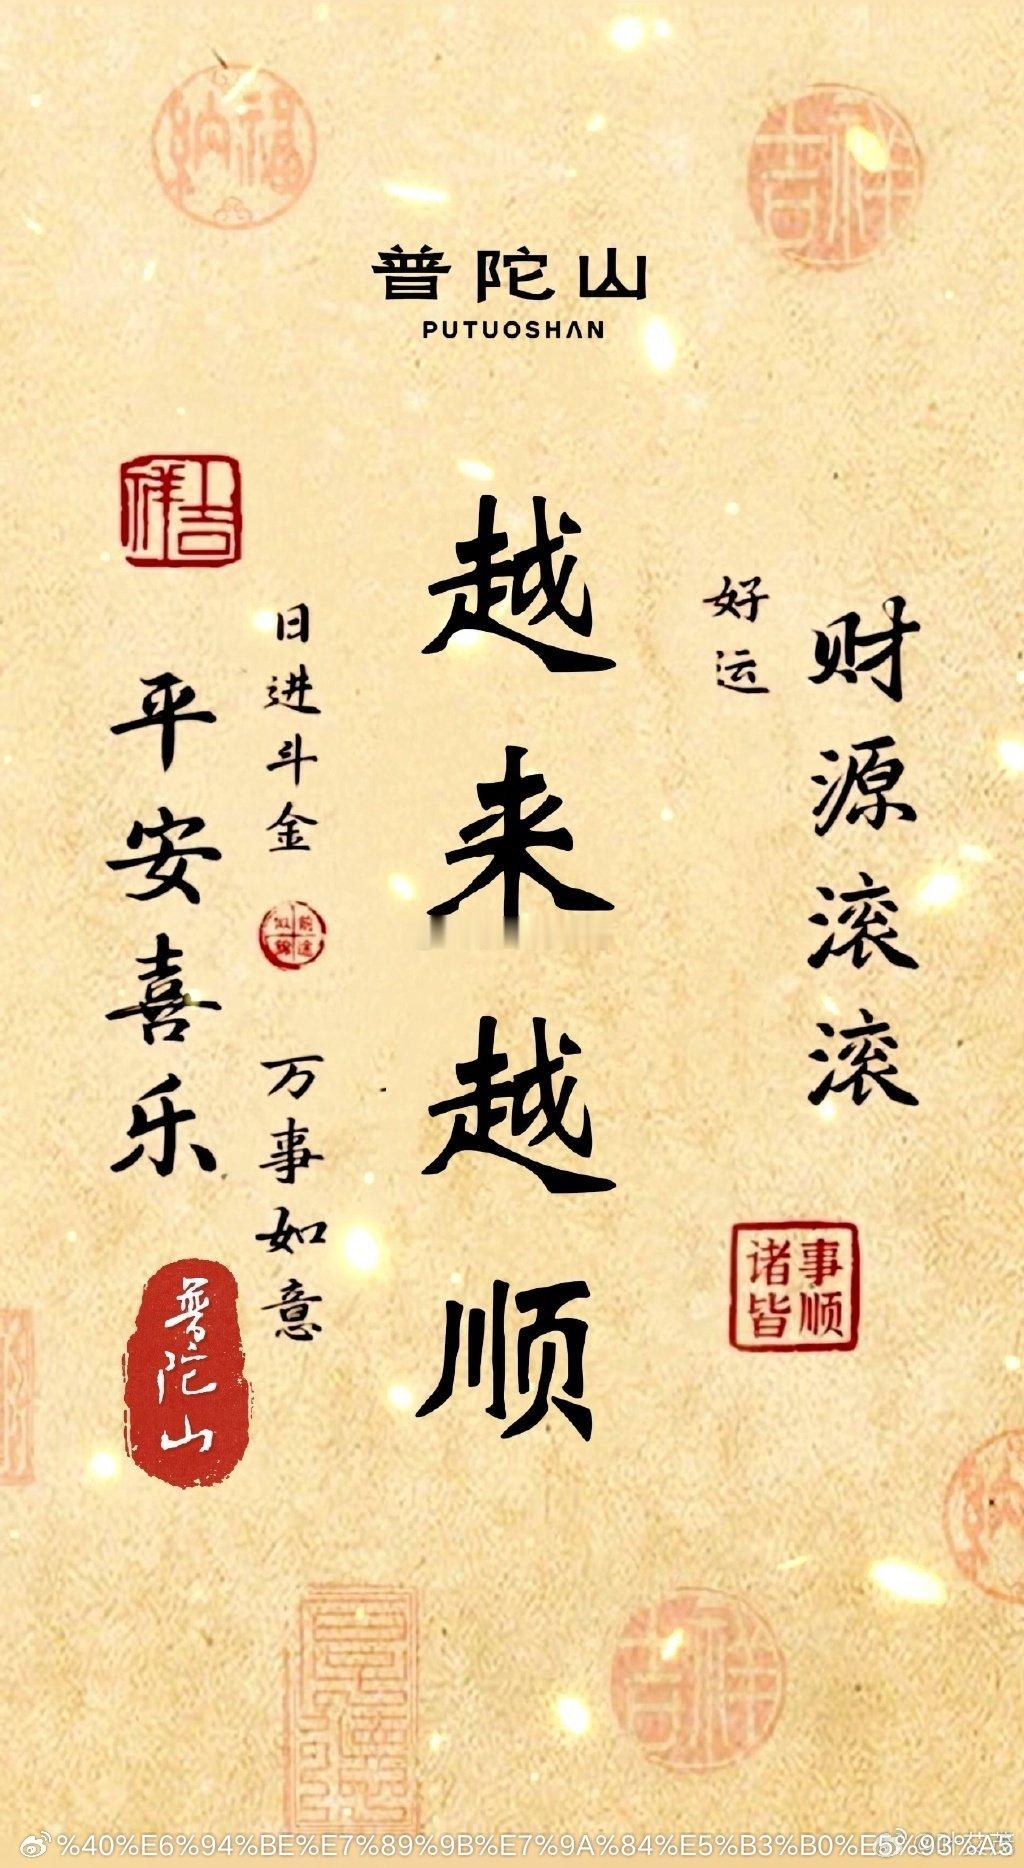 纳福
吉祥
普陀山
PUTUOSHAN
财源滚滚
好运
越来越顺
日进斗金
前途似锦
万事如意
吉祥
平安喜乐
事顺
诸皆
普陀山
吉祥
%40%E6%94%BE%E7%89%9B%E7%9A%84%E5%B3%B0%E5%93%A5